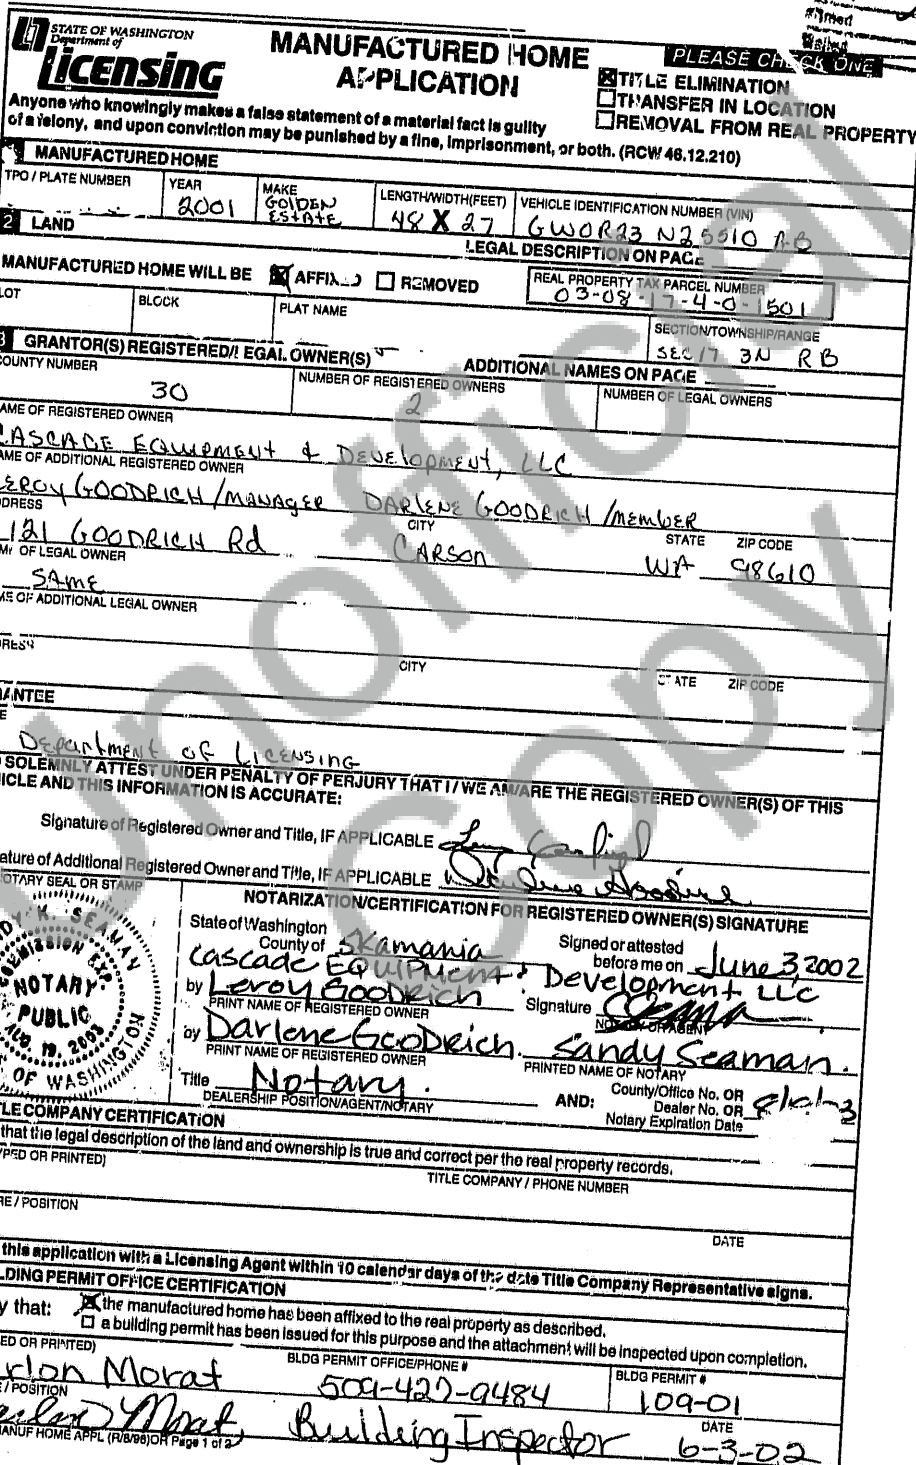 STATE OF WASHINGTON
Department of
Licensing
MANUFACTURED HOME
APPLICATION
PLEASE CHECK ONE
TITLE ELIMINATION
TRANSFER IN LOCATION
REMOVAL FROM REAL PROPERTY
Anyone who knowingly makes a false statement of a material fact is guilty
of a felony, and upon conviction may be punished by a fine, imprisonment, or both. (RCW 46.12.210)
MANUFACTURED HOME
TPO / PLATE NUMBER
YEAR
2001
MAKE
GOLDEN
ESTATE
LENGTH/WIDTH(FEET)
48 X 27
VEHICLE IDENTIFICATION NUMBER (VIN)
GWOR23 N25510 RB
2 LAND
LEGAL DESCRIPTION ON PAGE
MANUFACTURED HOME WILL BE
AFFIXED
REMOVED
REAL PROPERTY TAX PARCEL NUMBER
03-08-17-4-0-1501
LOT
BLOCK
PLAT NAME
SECTION/TOWNSHIP/RANGE
SEC 17 3N R8
3 GRANTOR(S) REGISTERED/LEGAL OWNER(S)
ADDITIONAL NAMES ON PAGE
COUNTY NUMBER
30
NUMBER OF REGISTERED OWNERS
2
NUMBER OF LEGAL OWNERS
AME OF REGISTERED OWNER
CASCADE EQUIPMENT & DEVELOPMENT, LLC
AME OF ADDITIONAL REGISTERED OWNER
LEROY GOODRICH/MANAGER DARLENE GOODRICH/MEMBER
DDRESS
CITY
STATE
ZIP CODE
121 GOODRICH Rd
CARSON
WA 98610
ME OF LEGAL OWNER
SAME
ME OF ADDITIONAL LEGAL OWNER
DRESS
CITY
STATE
ZIP CODE
ANTEE
E
Department OF LICENSING
SOLEMNLY ATTEST UNDER PENALTY OF PERJURY THAT I / WE AM/ARE THE REGISTERED OWNER(S) OF THIS
HICLE AND THIS INFORMATION IS ACCURATE:
Signature of Registered Owner and Title, IF APPLICABLE
ature of Additional Registered Owner and Title, IF APPLICABLE
NOTARY SEAL OR STAMP
NOTARIZATION/CERTIFICATION FOR REGISTERED OWNER(S) SIGNATURE
DY K. SEAMAN
COMMISSION EXP.
NOTARY
PUBLIC
AUG 19, 2003
OF WASHINGTON
State of Washington
County of Skamania
Signed or attested
before me on June 3, 2002
Cascade EQUIPMENT & Development LLC
by Leroy Goodrich
Signature
PRINT NAME OF REGISTERED OWNER
NOTARY OR AGENT
by Darlene Goodrich.
Sandy Seaman.
PRINT NAME OF REGISTERED OWNER
PRINTED NAME OF NOTARY
Title Notary.
DEALERSHIP POSITION/AGENT/NOTARY
AND:
County/Office No. OR
Dealer No. OR
Notary Expiration Date
TLE COMPANY CERTIFICATION
that the legal description of the land and ownership is true and correct per the real property records.
YPED OR PRINTED)
TITLE COMPANY / PHONE NUMBER
RE / POSITION
DATE
this application with a Licensing Agent within 10 calendar days of the date Title Company Representative signs.
LDING PERMIT OFFICE CERTIFICATION
y that:
the manufactured home has been affixed to the real property as described.
a building permit has been issued for this purpose and the attachment will be inspected upon completion.
ED OR PRINTED)
BLDG PERMIT OFFICE/PHONE #
BLDG PERMIT #
rlon Morat
509-427-9484
109-01
E / POSITION
DATE
Morat, Building Inspector
6-3-02
MANUF HOME APPL (R/8/98)OR Page 1 of 2
Unofficial
Copy